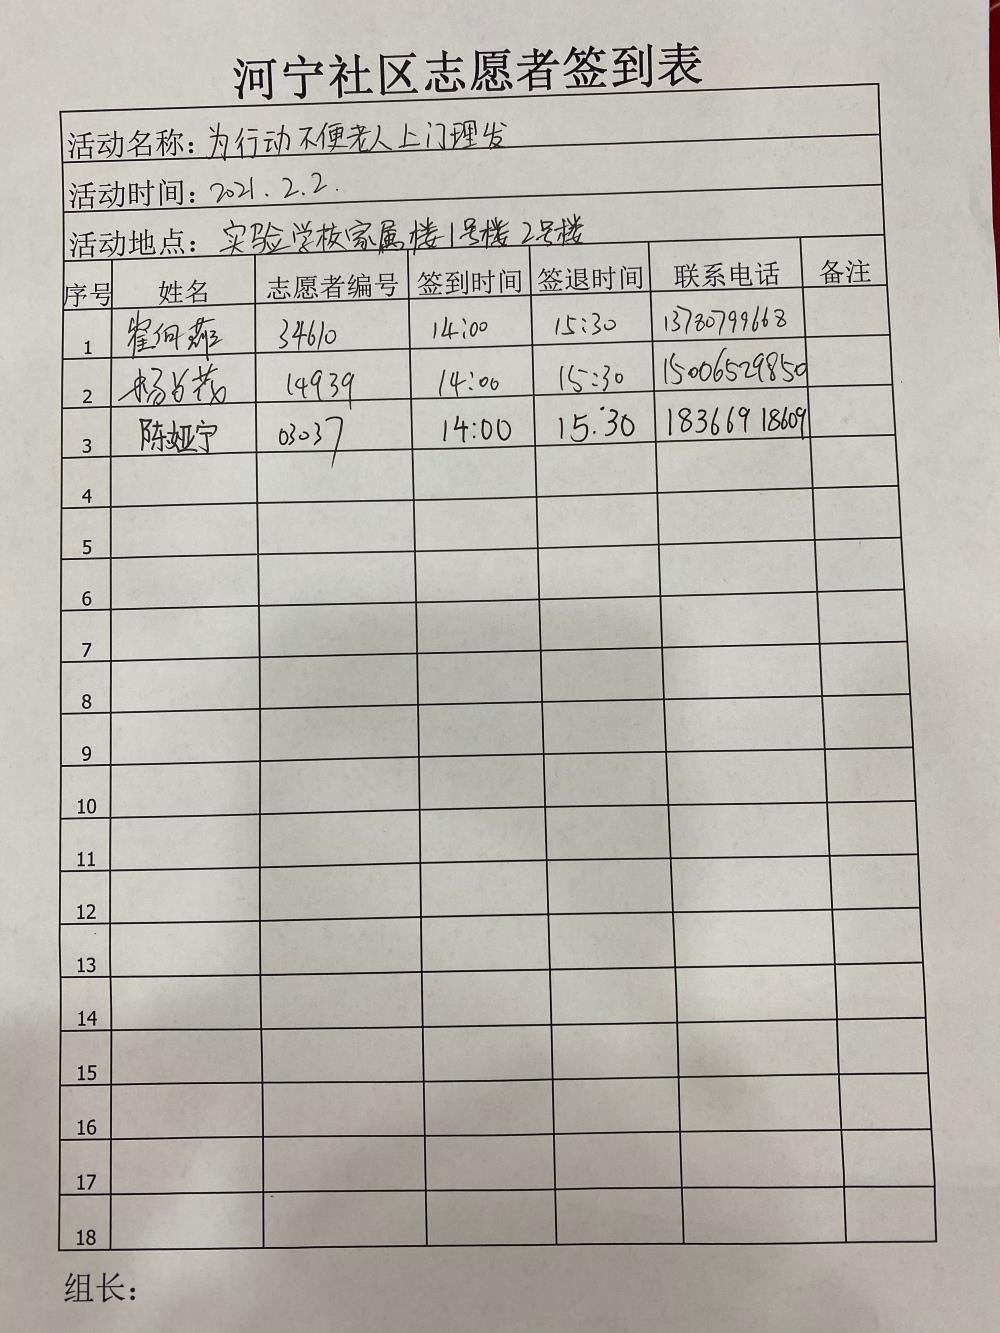 河宁社区志愿者签到表
活动名称：为行动不便老人上门理发
活动时间：2021.2.2.
活动地点：实验学校家属楼1号楼2号楼
序号 姓名 志愿者编号 签到时间 签退时间 联系电话 备注
1 34610 14:00 15:30 13780799668
2 14939 14:00 15:30 15006529850
3 陈娅宁 03037 14:00 15:30 18366918609
4
5
6
7
8
9
10
11
12
13
14
15
16
17
18
组长：